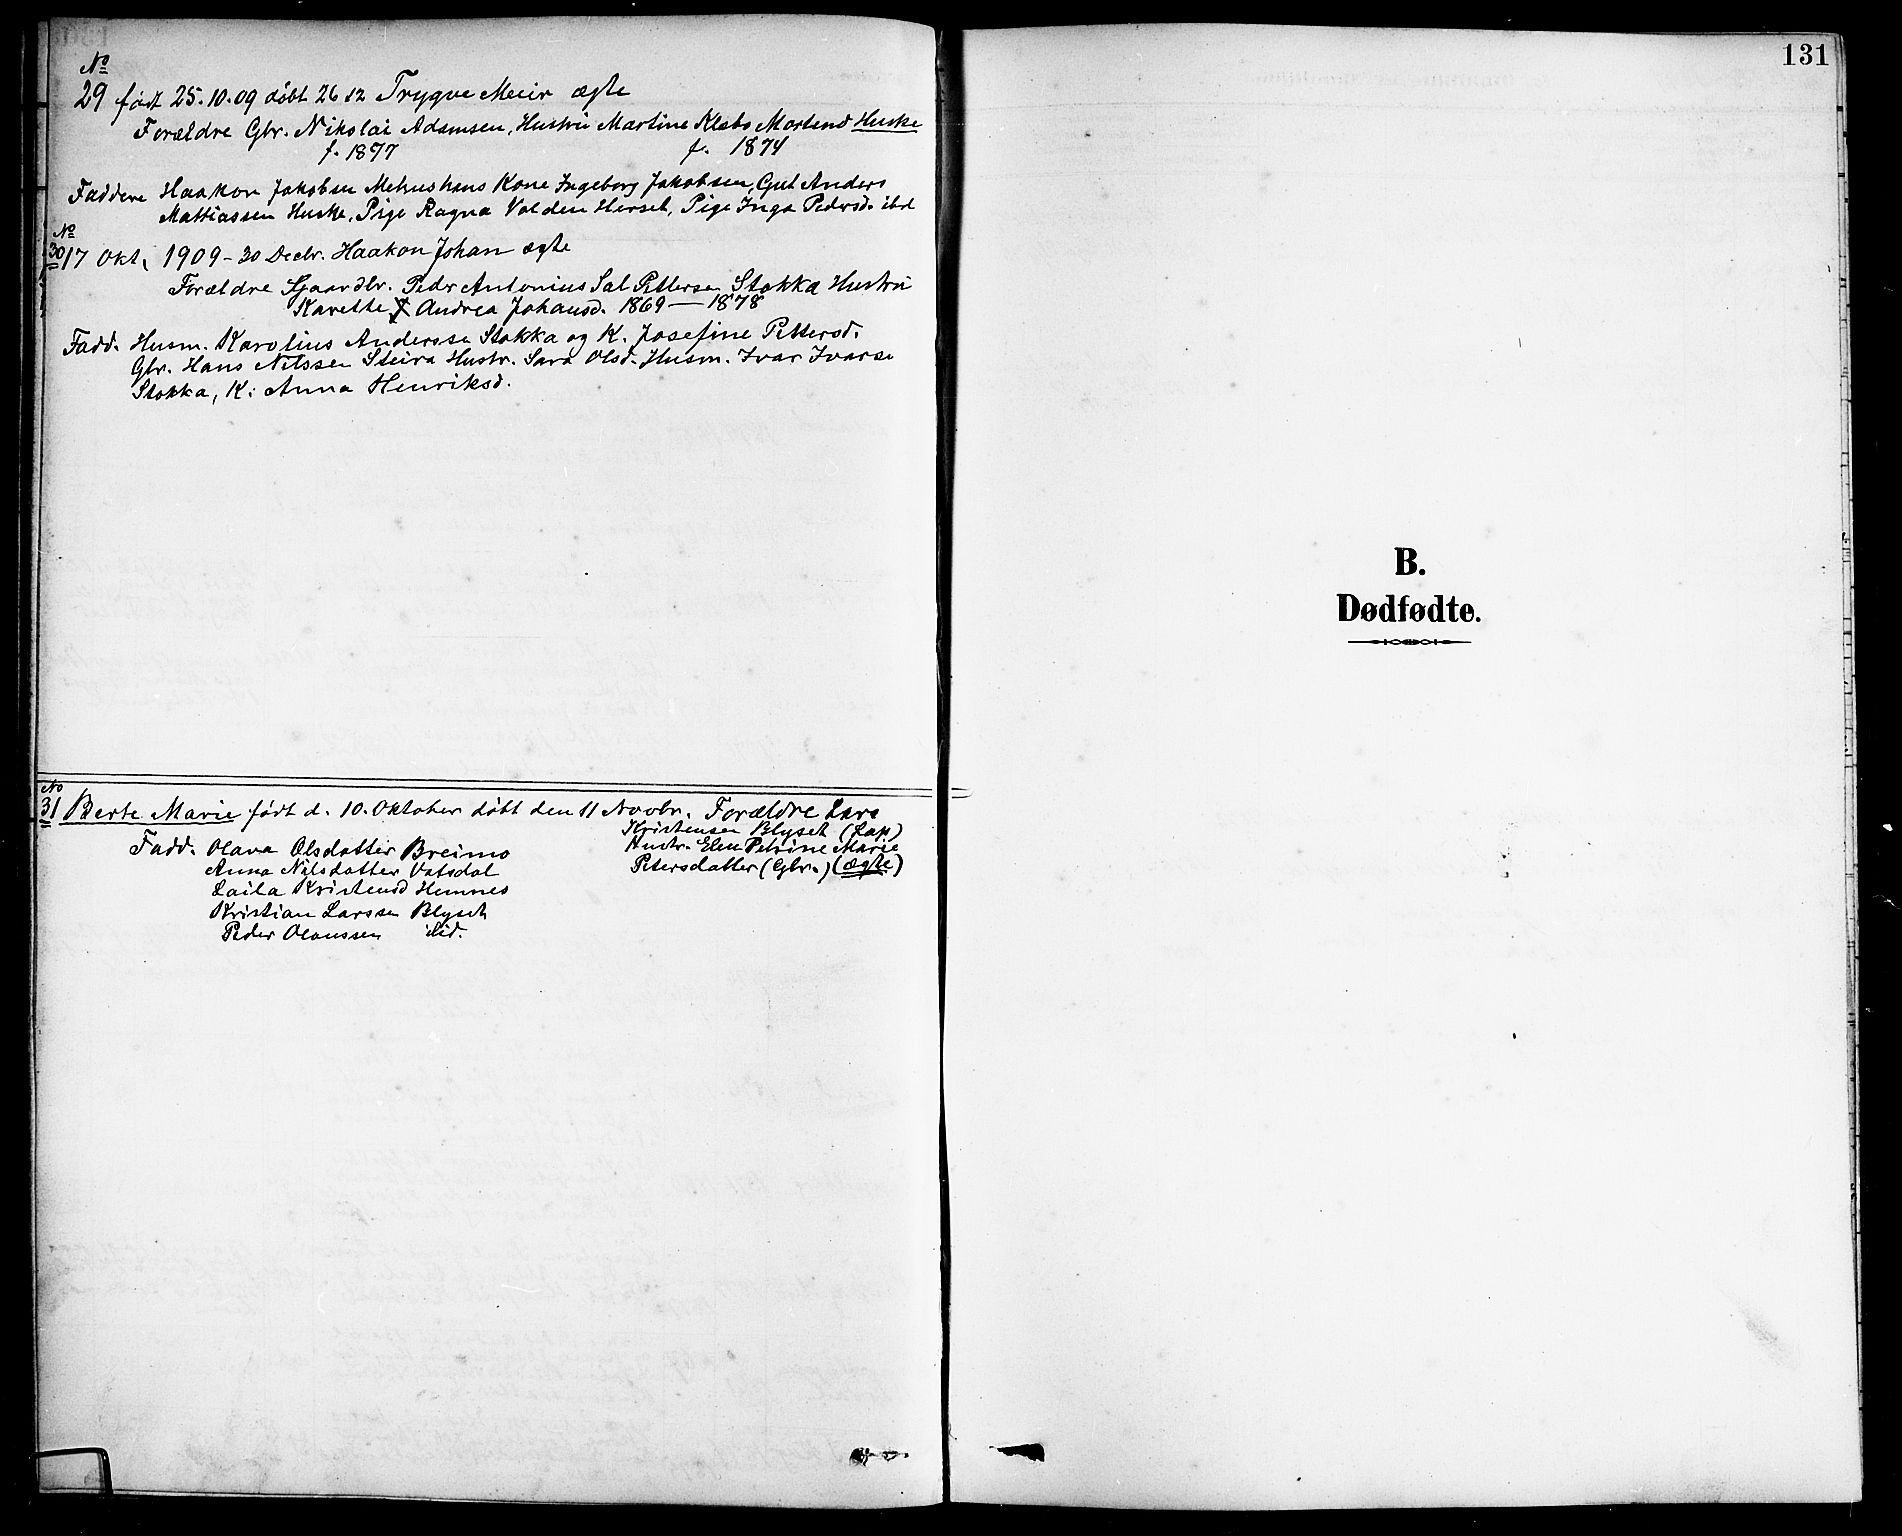 No
29 født 25.10.09 døbt 26 12 Trygve Meier ægte
Forældre Gbr. Nikolai Adamsen, Hustru Martine Klebo Mortensd Huske
f. 1877 f. 1874
Faddere Haakon Jakobsen Mehus hans Kone Ingeborg Jakobsen, Gut Anders
Mattiassen Huske, Pige Ragna Valden Herset, Pige Inga Pedersd. ibd
No
30 17 Okt. 1909 - 30 Decbr. Haakon Johan ægte
Forældre Gaardbr. Pedr Antonius Sal Pettersen Stokka Hustru
Karette Andrea Johansd. 1869 — 1878
Fadd. Husm. Karolius Anderssen Stokka og K. Josefine Pettersd.
Gbr. Hans Nilssen Steira Hustr. Sara Olsd. Husm. Ivar Ivarsen
Stokka, K: Anna Henriksd.
No
31 Berte Marie født d. 10. Oktober døbt den 11 Novbr. Forældre Lars
Kristensen Blyset (Lap)
Hustr. Elen Petrine Marie
Petersdatter (Gbr.) (ægte)
Fadd. Olava Olsdatter Breimo
Anna Nilsdatter Vatsdal
Laila Kristensd Hemnes
Kristian Larssen Blyset
Peder Olaussen ibid.
131
B.
Dødfødte.